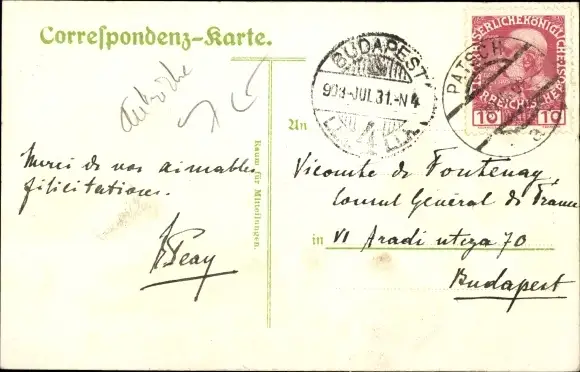 Correspondenz-Karte.
Autriche
BUDAPEST
908-JUL.31.-N4
PATSCH
KAISERLICHE KÖNIGLICHE
10 10
An
Merci de vos aimables
félicitations.
Raum für Mitteilungen.
Vicomte de Fontenay
Consul Général de France
in VI Aradi utcza 70
Budapest